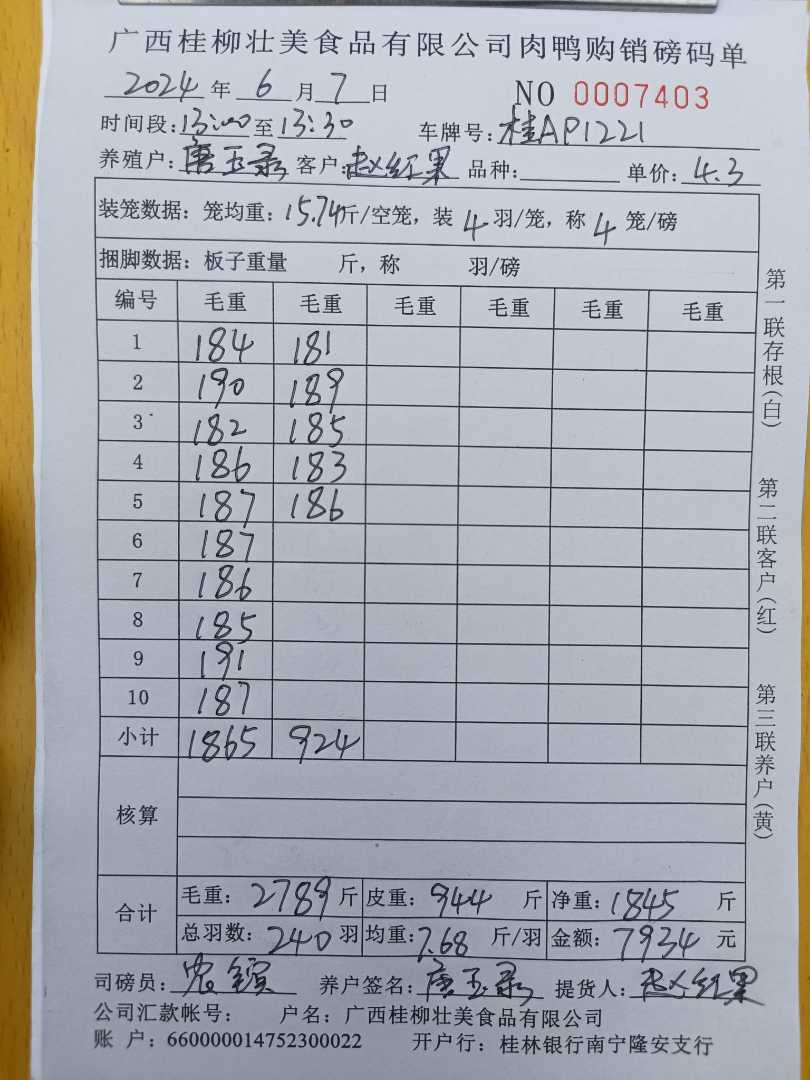 广西桂柳壮美食品有限公司肉鸭购销磅码单
2024 年 6 月 7 日 NO 0007403
时间段:13:00至13:30 车牌号:桂AP1221
养殖户:唐玉录 客户:赵红果 品种: 单价:4.3
装笼数据:笼均重:15.74斤/空笼,装 4 羽/笼,称 4 笼/磅
捆脚数据:板子重量 斤,称 羽/磅
编号 毛重 毛重 毛重 毛重 毛重 毛重
1 184 181
2 190 189
3 182 185
4 186 183
5 187 186
6 187
7 186
8 185
9 191
10 187
小计 1865 924
核算
合计 毛重:2789斤 皮重:944 斤 净重:1845 斤
总羽数:240羽 均重:7.68 斤/羽 金额:7934 元
司磅员: 养户签名:唐玉录 提货人:赵红果
公司汇款帐号: 户名:广西桂柳壮美食品有限公司
账 户:660000014752300022 开户行:桂林银行南宁隆安支行
第一联存根(白)
第二联客户(红)
第三联养户(黄)